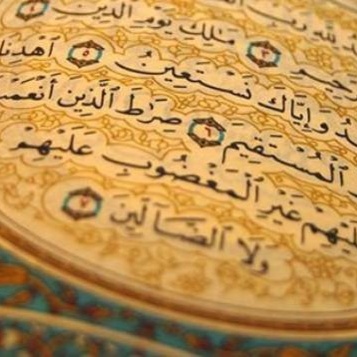 لله رب
حِيمِ ٣ مَلِكِ يَوْمِ ٱلدِّينِ
وَإِيَّاكَ نَسْتَعِينُ ٥ ٱهْدِنَا
ٱلْمُسْتَقِيمَ ٦ صِرَٰطَ ٱلَّذِينَ أَنْعَمْـ
لَيْهِمْ غَيْرِ ٱلْمَغْضُوبِ عَلَيْهِمْ
وَلَا ٱلضَّآلِّينَ ٧